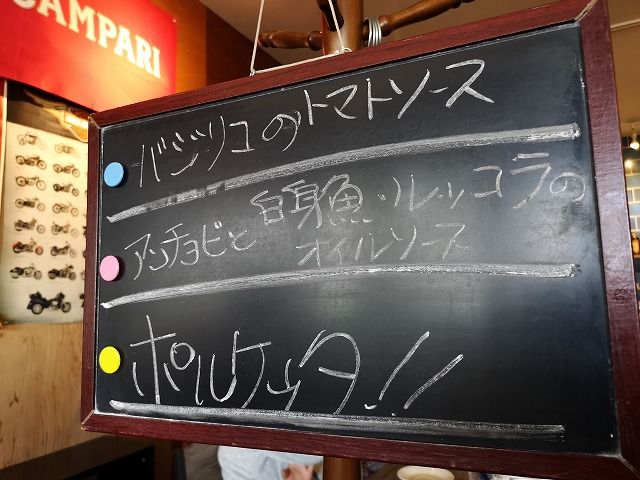 CAMPARI
バジリコのトマトソース
アンチョビと自身魚、ルッコラの
オイルソース
ポルケッタ!!